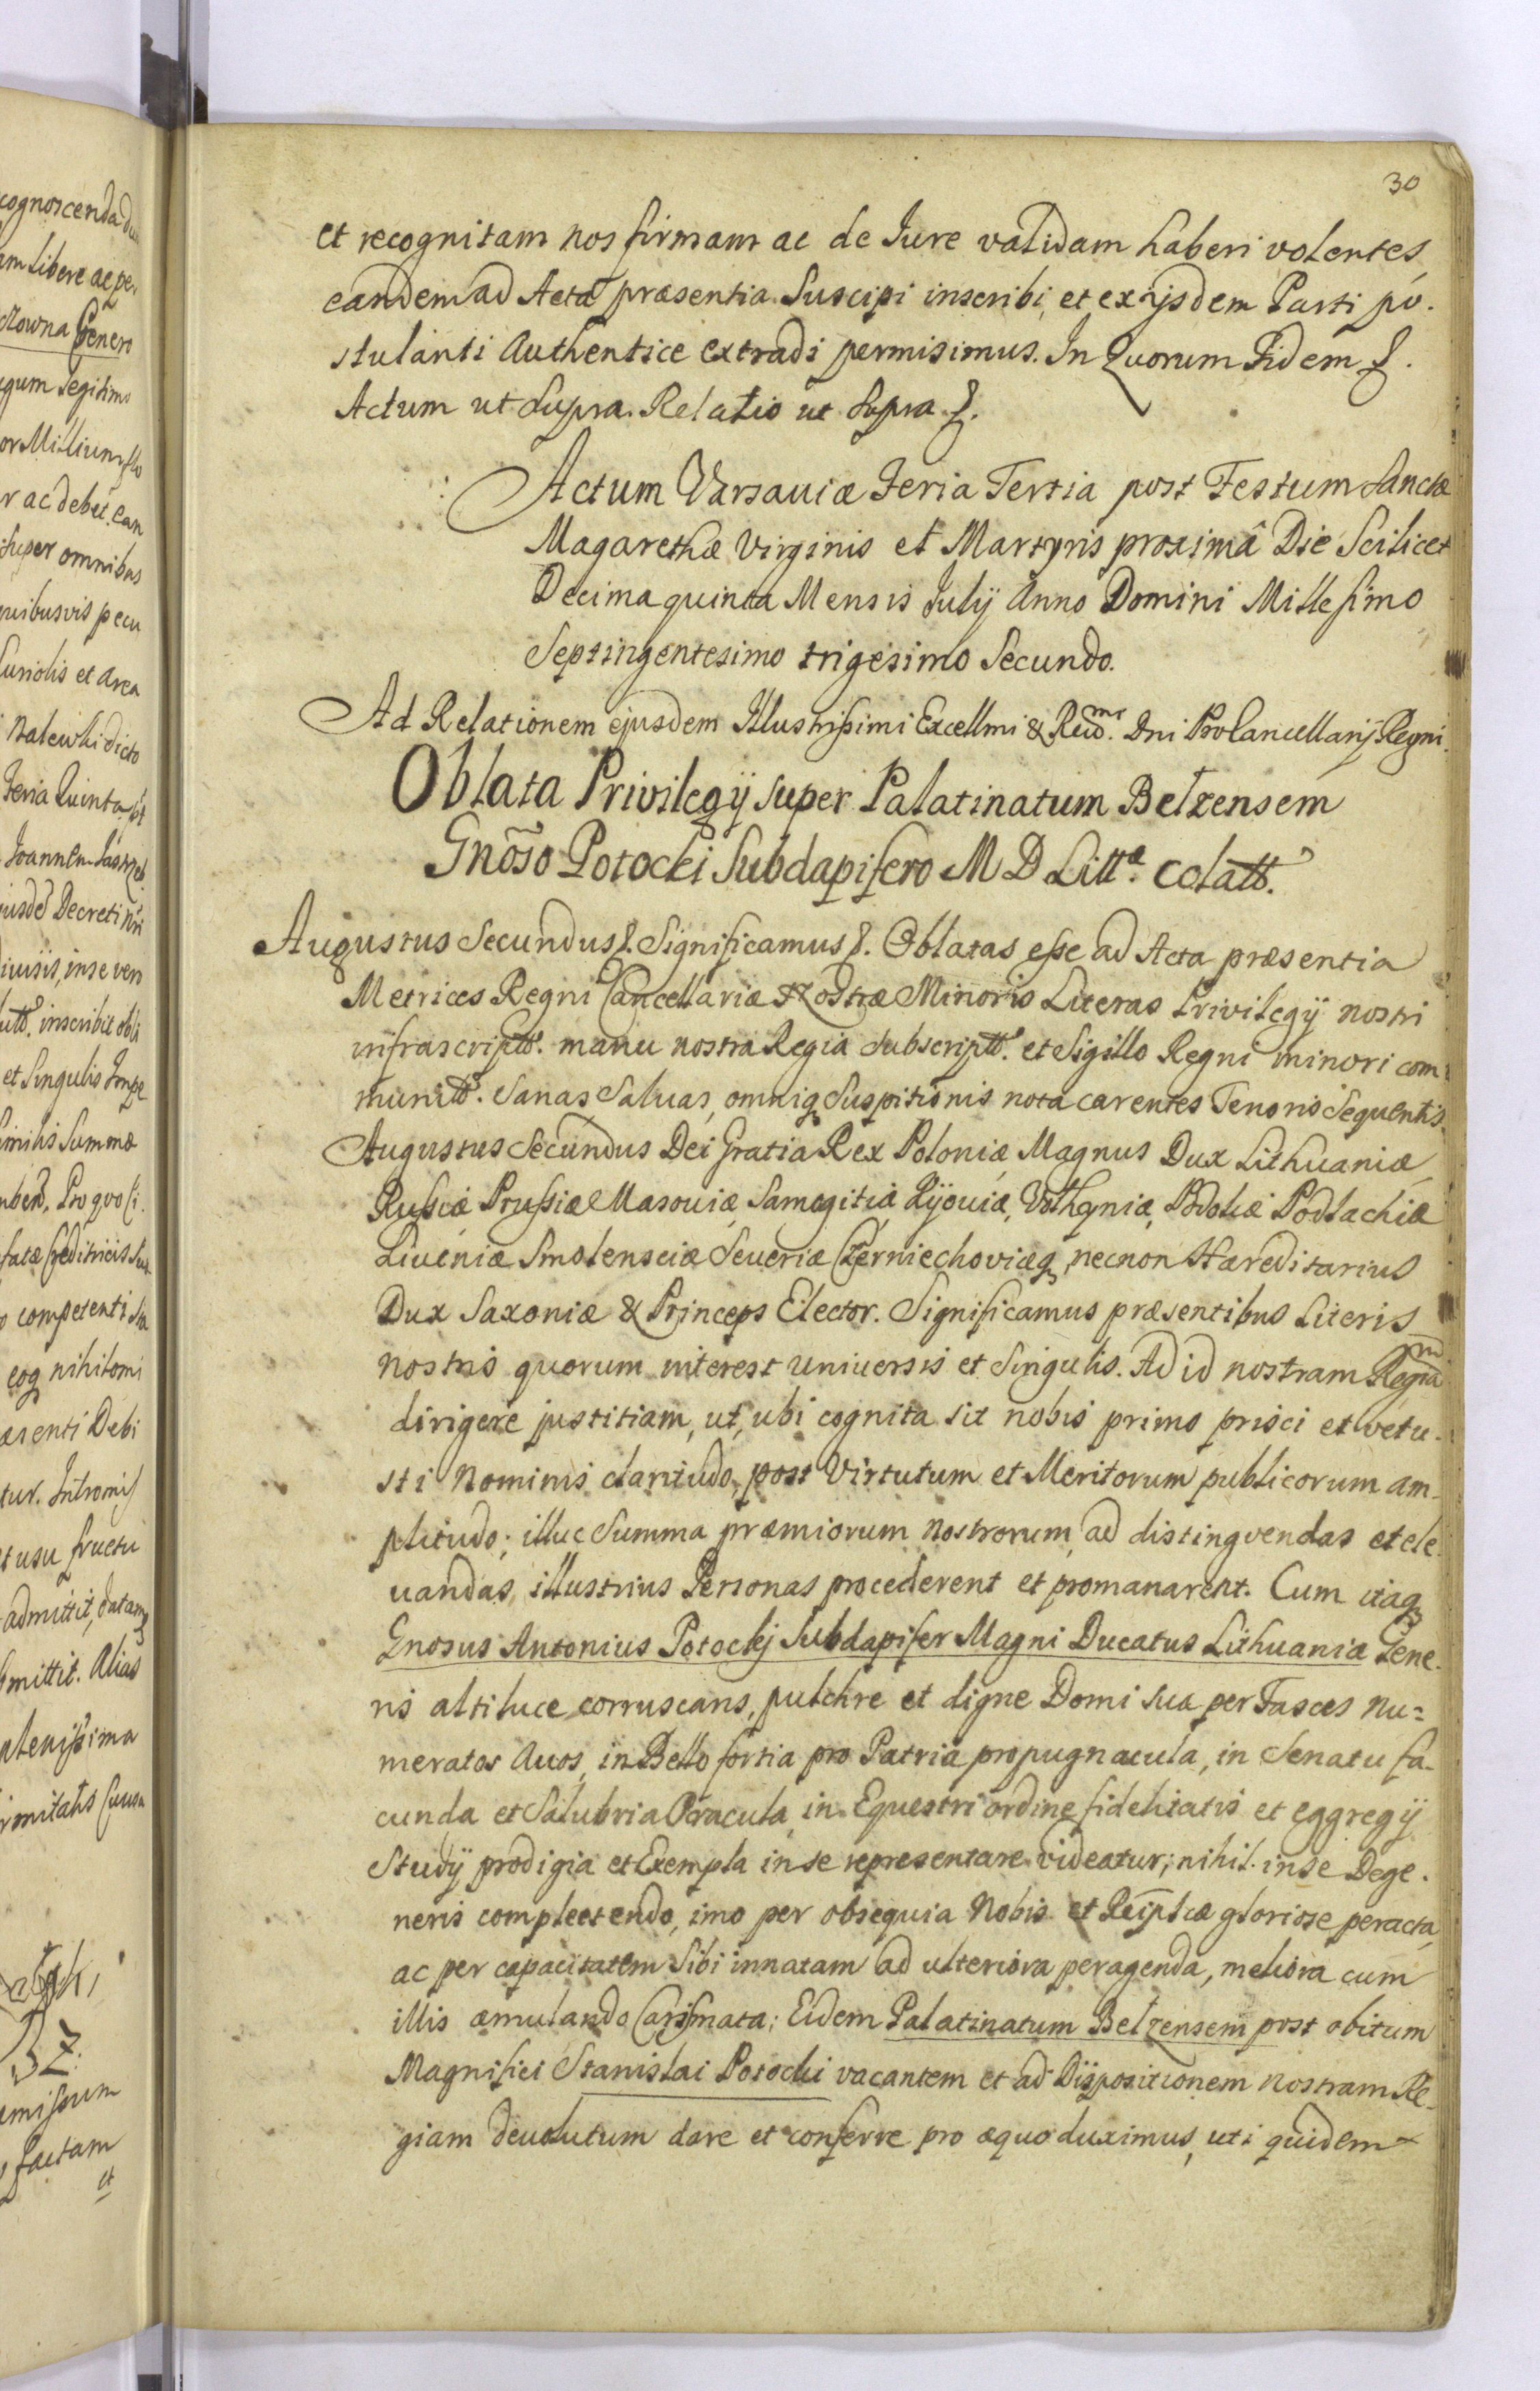 30
et recognitam nos firmam ac de Jure validam haberi volentes,
eandem ad Acta præsentia Suscipi inscribi, et ex ijsdem Parti po.
stulanti Authentice extradi permisimus. In Quorum Fidem &.
Actum ut Supra. Relatio ut Supra &.
Actum Varsaviæ Feria Tertia post Festum Sanctæ
Magarethæ Virginis et Martyris proximâ Die Scilicet
Decima quinta Mensis Julij Anno Domini Millesimo
Septingentesimo trigesimo Secundo.
Ad Relationem ejusdem Illustrissimi Excellmi & Revd. Dni ProCancellarij Regni.
Oblata Privilegij super Palatinatum Belzensem
Gnõso Potocki Subdapifero M D Litt. Colatt.
Augustus Secundus &. Significamus &. Oblatas esse ad Acta præsentia
Metrices Regni Cancellariæ Nostræ Minoris Literas Privilegij nostri
infrascriptt. manu nostra Regia Subscriptt. et Sigillo Regni minori com
munitt. Sanas Salvas, omniq Suspitionis nota carentes Tenoris Sequentis.
Augustus Secundus Dei Gratia Rex Poloniæ, Magnus Dux Lithuaniæ,
Russiæ Prussiæ Masoviæ, Samogitiæ Kijoviæ, Volhyniæ, Podoliæ Podlachiæ
Livoniæ Smolensciæ Severiæ Czerniechoviæq, necnon Hæreditarius
Dux Saxoniæ & Princeps Elector. Significamus præsentibus Literis
nostris quorum interest universis et Singulis. Ad id nostram Regiam
dirigere justitiam, ut, ubi cognita sit nobis primo prisci et vetu-
sti Nominis claritudo, post Virtutum et Meritorum publicorum am-
plitudo; illuc Summa præmiorum nostrorum, ad distingvendas et ele
vandas, illustrius Personas procederent et promanarent. Cum itaq
Gnosus Antonius Potockj Subdapifer Magni Ducatus Lithuaniæ Gene-
ris alti luce corruscans, pulchre et digne Domi sua per Fasces nu=
meratos Avos, in Bello fortia pro Patria propugnacula, in Senatu fa-
cunda et Salubria Oracula, in Equestri ordine fidelitatis et eggregij
Studij prodigia et Exempla in se representare videatur; nihil in se Dege.
neris complectendo, imo per obsequia Nobis et Reiplicæ gloriose peracta,
ac per capacitatem Sibi innatam ad ulteriora peragenda, meliora cum
illis æmulando Carismata; Eidem Palatinatum Belzensem post obitum
Magnifici Stanislai Potocki vacantem et ad Dispositionem nostram Re-
giam devolutum dare et conferre pro æquo duximus, uti quidem